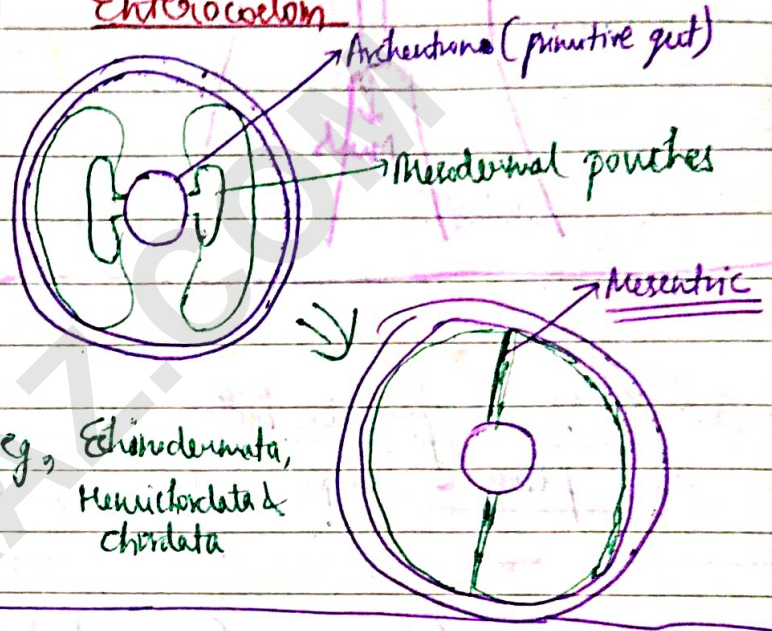 Enterocoelom
Archentrons (primitive gut)
Mesodermal pouches
Mesentric
eg, Echinodermata,
Hemichordata &
Chordata
AZ.COM